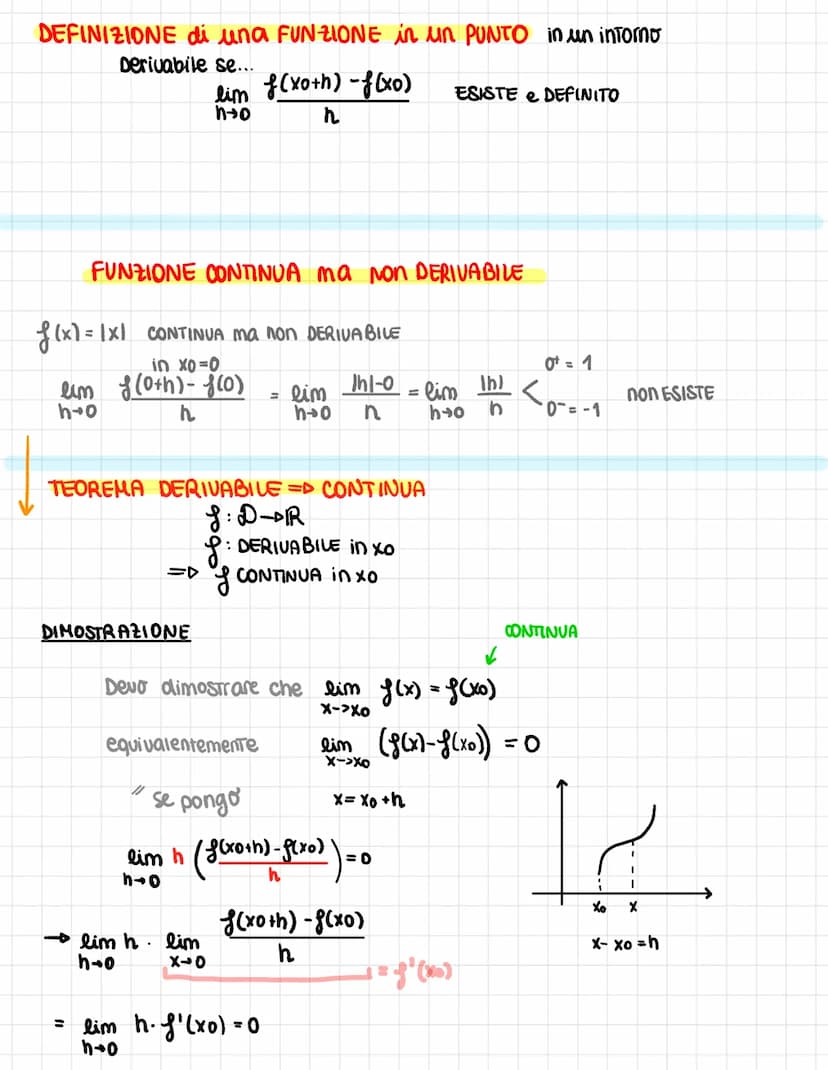 DEFINIZIONE di una FUNZIONE in un PUNTO in un intorno
Derivabile se...
lim h→0 f(x0+h) - f(x0) / h ESISTE e DEFINITO
FUNZIONE CONTINUA ma non DERIVABILE
f(x) = |x| CONTINUA ma non DERIVABILE
in x0=0
lim h→0 f(0+h) - f(0) / h = lim h→0 |h|-0 / h = lim h→0 |h| / h < 0⁺ = 1 0⁻ = -1 non ESISTE
TEOREMA DERIVABILE => CONTINUA
f : D → ℝ
f : DERIVABILE in x0
=> f CONTINUA in x0
DIMOSTRAZIONE
CONTINUA
Devo dimostrare che lim x->x0 f(x) = f(x0)
equivalentemente lim x->x0 (f(x)-f(x0)) = 0
" se pongo x = x0 + h
lim h→0 h (f(x0+h) - f(x0) / h) = 0
x0 x
→ lim h→0 h · lim x→0 f(x0+h) - f(x0) / h
x - x0 = h
= f'(x0)
= lim h→0 h · f'(x0) = 0